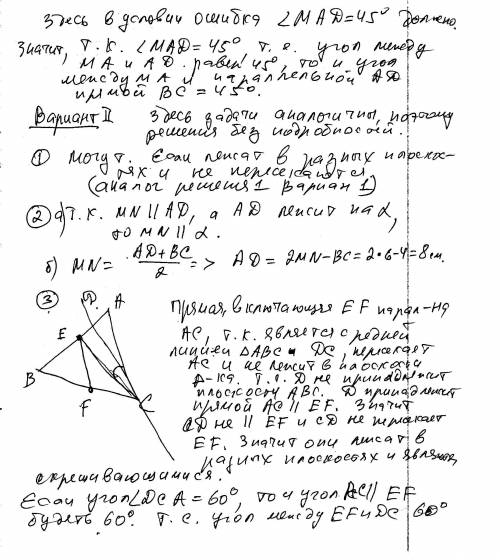 Здесь в условии ошибка ∠MAD=45° должно.
Значит, т.к. ∠MAD=45° т.е. угол между
MA и AD равен 45°, то и угол
между MA и параллельной AD
прямой BC = 45°.
Вариант II Здесь задачи аналогичны, поэтому
решения без подробностей.
① Могут. Если лежат в разных плоскос-
тях и не пересекаются
(аналог решения 1 Вариант 1)
② а) Т.к. MN ∥ AD, а AD лежит на α,
то MN ∥ α.
б) MN = (AD+BC)/2 => AD = 2MN-BC = 2•6-4=8 см.
③ D A
E
B
F C
Прямая, включающая EF парал-на
AC, т.к. является средней
линией △ABC. DC, пересекает
AC и не лежит в плоскости
△-ка. Т.е. D не принадлежит
плоскости ABC. D принадлежит
прямой AC ∥ EF. Значит
CD не ∥ EF и CD не пересекает
EF. Значит они лежат в
разных плоскостях и являются
скрещивающимися.
Если угол ∠DCA = 60°, то и угол AC ∥ EF
будет 60°. Т.е. угол между EF и DC 60°